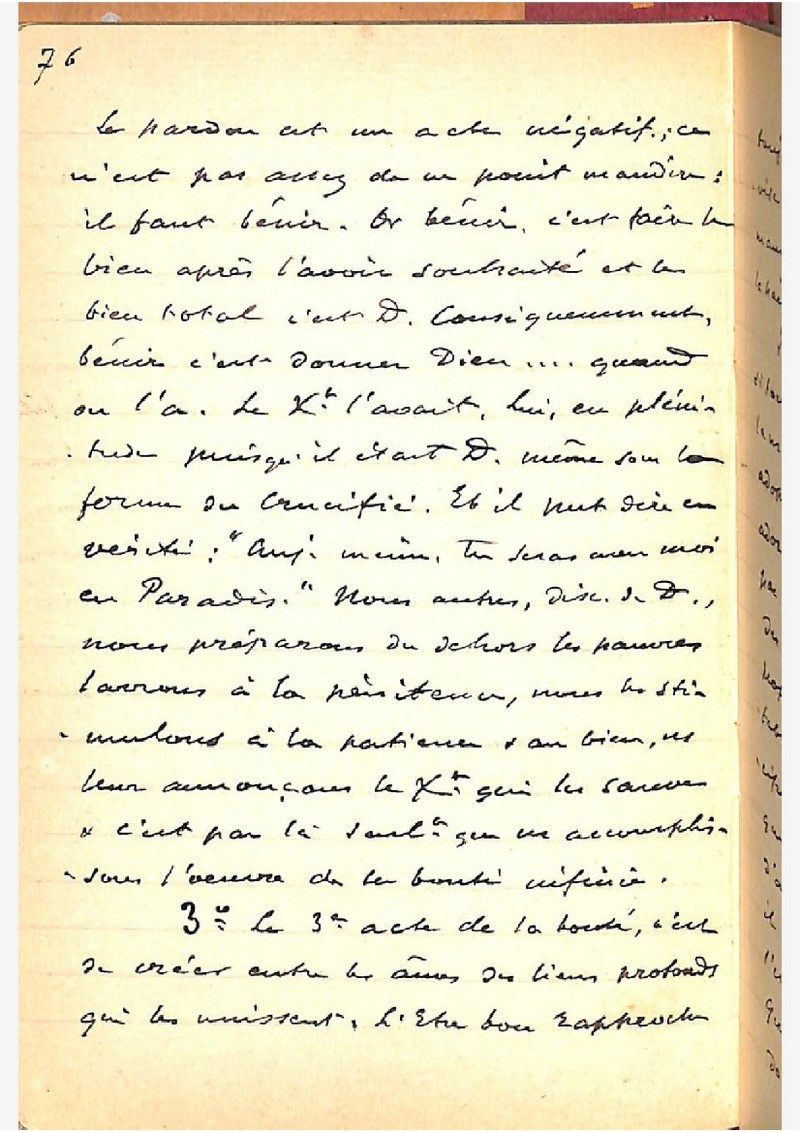 76
Le pardon est un acte négatif ; ce
n'est pas assez de ne point maudire :
il faut bénir. Or bénir, c'est faire le
bien après l'avoir souhaité et le
bien total c'est D. Conséquemment,
bénir c'est donner Dieu .... quand
on l'a. Le Xt l'avait, lui, en pléni-
-tude puisqu'il était D. même sous la
forme du Crucifié. Et il put dire en
vérité : "Auj. même, Tu seras avec moi
en Paradis." Nous autres, disc. de D.,
nous préparons du dehors les pauvres
larrons à la pénitence, nous les sti-
-mulons à la patience & au bien, ns
leur annonçons le Xt qui les sauve
& c'est par là seult que ns accomplis-
-sons l'oeuvre de la bonté infinie.
3o Le 3e acte de la bonté, c'est
de créer entre les âmes des liens profonds
qui les unissent. L'Etre bon rapproche